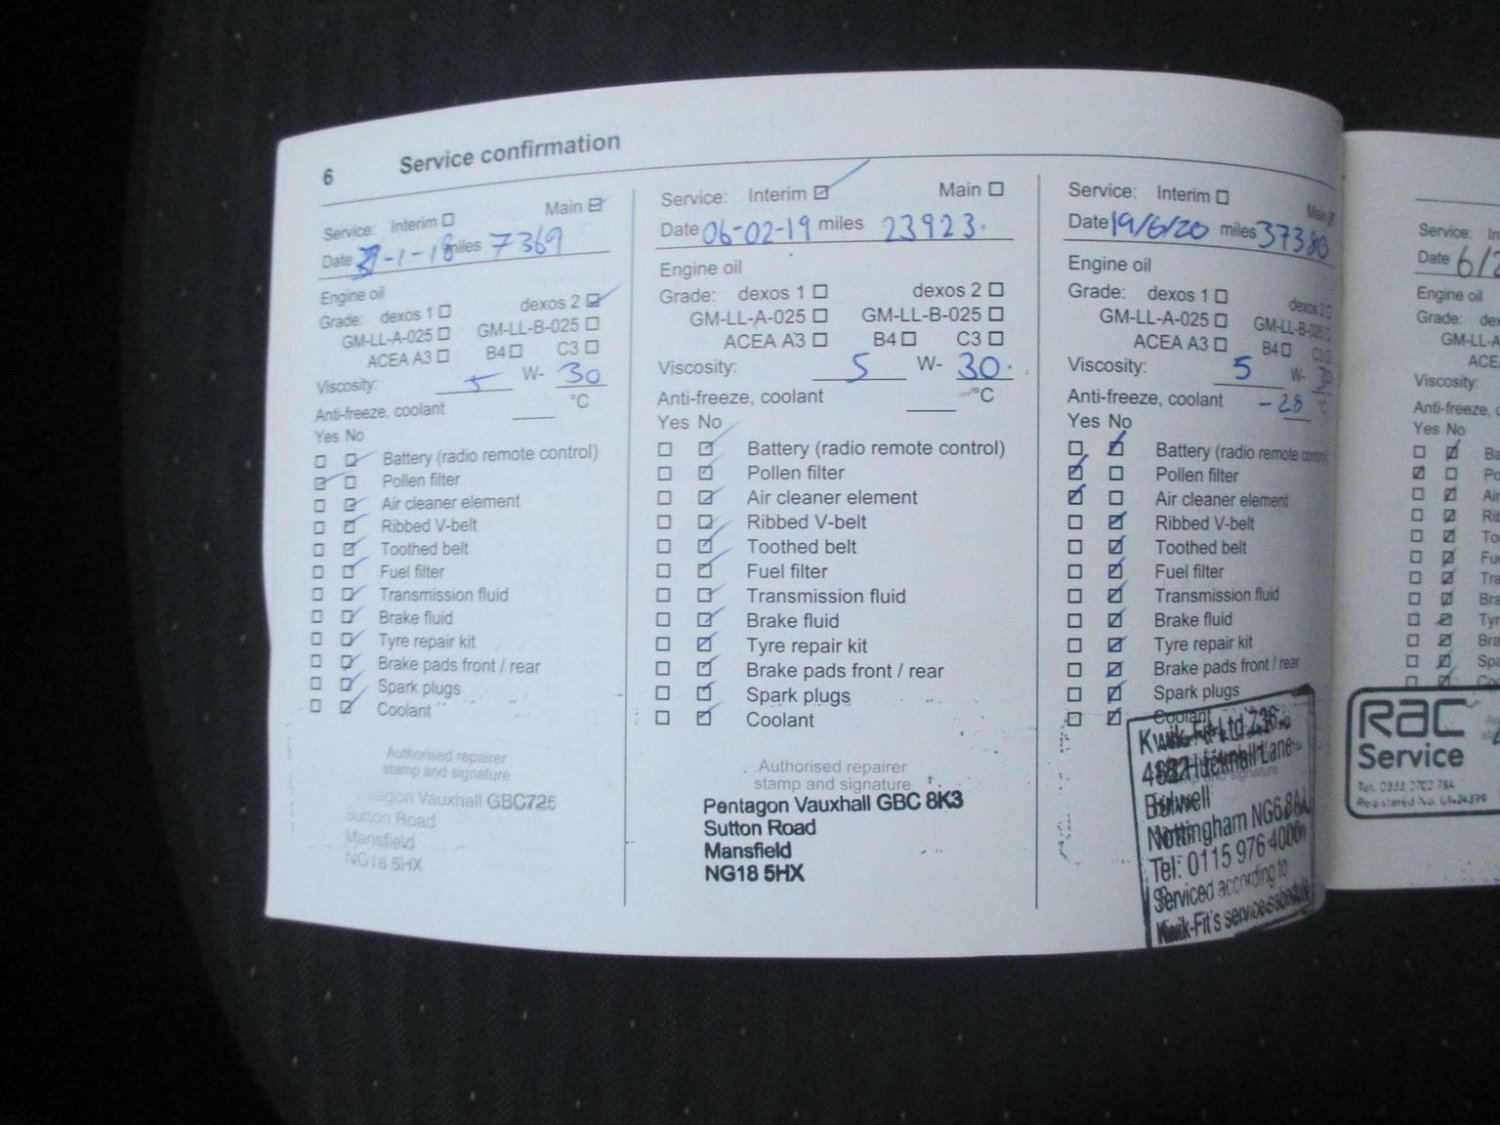 6 Service confirmation
Service: Interim Main
Date -1-18 miles 7369
Engine oil
Grade: dexos 1 dexos 2
GM-LL-A-025 GM-LL-B-025
ACEA A3 B4 C3
Viscosity: 5 W- 30
Anti-freeze, coolant °C
Yes No
Battery (radio remote control)
Pollen filter
Air cleaner element
Ribbed V-belt
Toothed belt
Fuel filter
Transmission fluid
Brake fluid
Tyre repair kit
Brake pads front / rear
Spark plugs
Coolant
Authorised repairer
stamp and signature
Pentagon Vauxhall GBC725
Sutton Road
Mansfield
NG18 5HX
Service: Interim Main
Date 06-02-19 miles 23923.
Engine oil
Grade: dexos 1 dexos 2
GM-LL-A-025 GM-LL-B-025
ACEA A3 B4 C3
Viscosity: 5 W- 30.
Anti-freeze, coolant °C
Yes No
Battery (radio remote control)
Pollen filter
Air cleaner element
Ribbed V-belt
Toothed belt
Fuel filter
Transmission fluid
Brake fluid
Tyre repair kit
Brake pads front / rear
Spark plugs
Coolant
Authorised repairer
stamp and signature
Pentagon Vauxhall GBC 8K3
Sutton Road
Mansfield
NG18 5HX
Service: Interim Main
Date 19/6/20 miles 37380
Engine oil
Grade: dexos 1 dexos 2
GM-LL-A-025 GM-LL-B-025
ACEA A3 B4 C3
Viscosity: 5 W- 30
Anti-freeze, coolant -28 °C
Yes No
Battery (radio remote control)
Pollen filter
Air cleaner element
Ribbed V-belt
Toothed belt
Fuel filter
Transmission fluid
Brake fluid
Tyre repair kit
Brake pads front / rear
Spark plugs
Coolant
Kwik-Fit Ltd
Hucknall Lane
Bulwell
Nottingham NG6 8AJ
Tel: 0115 976 4000
Serviced according to
Kwik-Fit's service schedule
Service: In
Date 6/2
Engine oil
Grade: dex
GM-LL-A
ACE
Viscosity:
Anti-freeze, c
Yes No
Ba
Po
Air
Rib
To
Fue
Tra
Bra
Tyr
Bra
Spa
Coo
RAC
Service